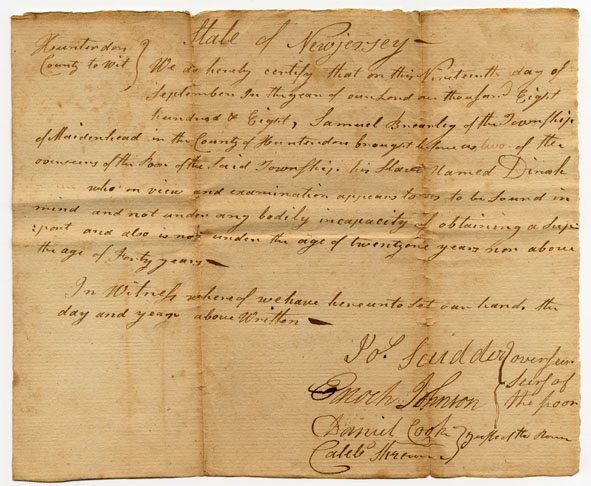 State of New jersey
Hunterdon
County to Wit
We do hereby certify that on this Nineteenth day of
September In the year of our Lord on thousand Eight
hundred & Eight, Samuel Brearley of the Township
of Maidenhead in the County of Hunterdon brought before us two of the
overseears of the Poor of the Said Township his Slave Named Dinah
who on view and examination appears to us to be Sound in
mind and not under any bodily incapacity of obtaining a Sup
port and also is not under the age of twenty one years nor above
the age of Forty years
In Witness whereof we have hereunto Set our hands the
day and year above Written
Jos Scudder
Enoch Johnson
overseers of
the poor
Daniel Cook
Caleb
of the